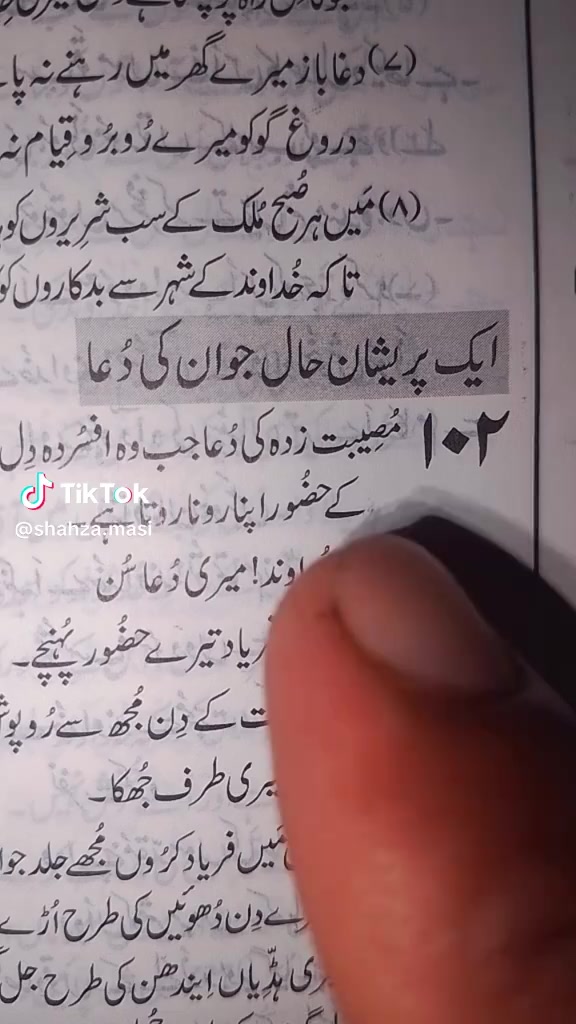 (۷) دغاباز میرے گھر میں رہنے نہ پا
دروغ گو کو میرے رُوبرُو قِیام نہ
(۸) مَیں ہر صُبح مُلک کے سب شرِیروں کو
تاکہ خُداوند کے شہر سے بدکاروں کو
ایک پریشان حال جوان کی دُعا
۱۰۲ مُصِیبت زدہ کی دُعا جب وہ افسُردہ دِل
کے حضُور اپنا رونا روتا ہے
اوند! میری دُعا سُن
یاد تیرے حضُور پُہنچے۔
ت کے دِن مُجھ سے رُوپوش
یری طرف جُھکا۔
مَیں فریاد کرُوں مُجھے جلد جوا
ے دِن دُھوئیں کی طرح اُڑے
ری ہڈِّیاں اِیندھن کی طرح جل
TikTok
@shahza.masi